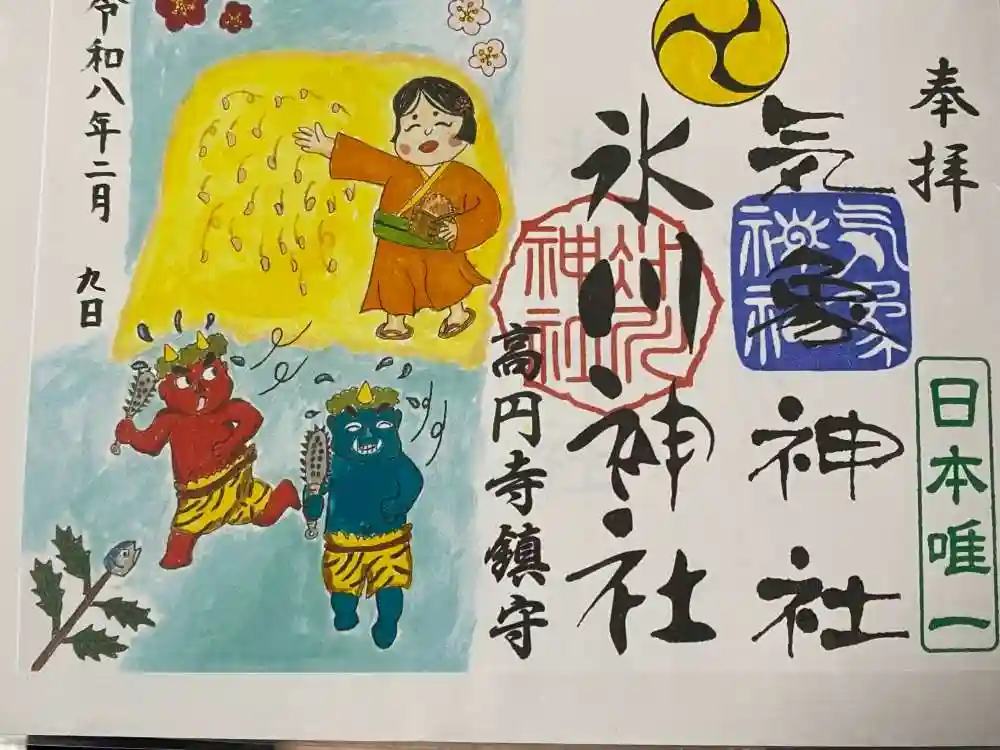 奉拝
日本唯一
気象神社
気象神社
氷川神社
氷川神社
高円寺鎮守
令和八年二月
九日